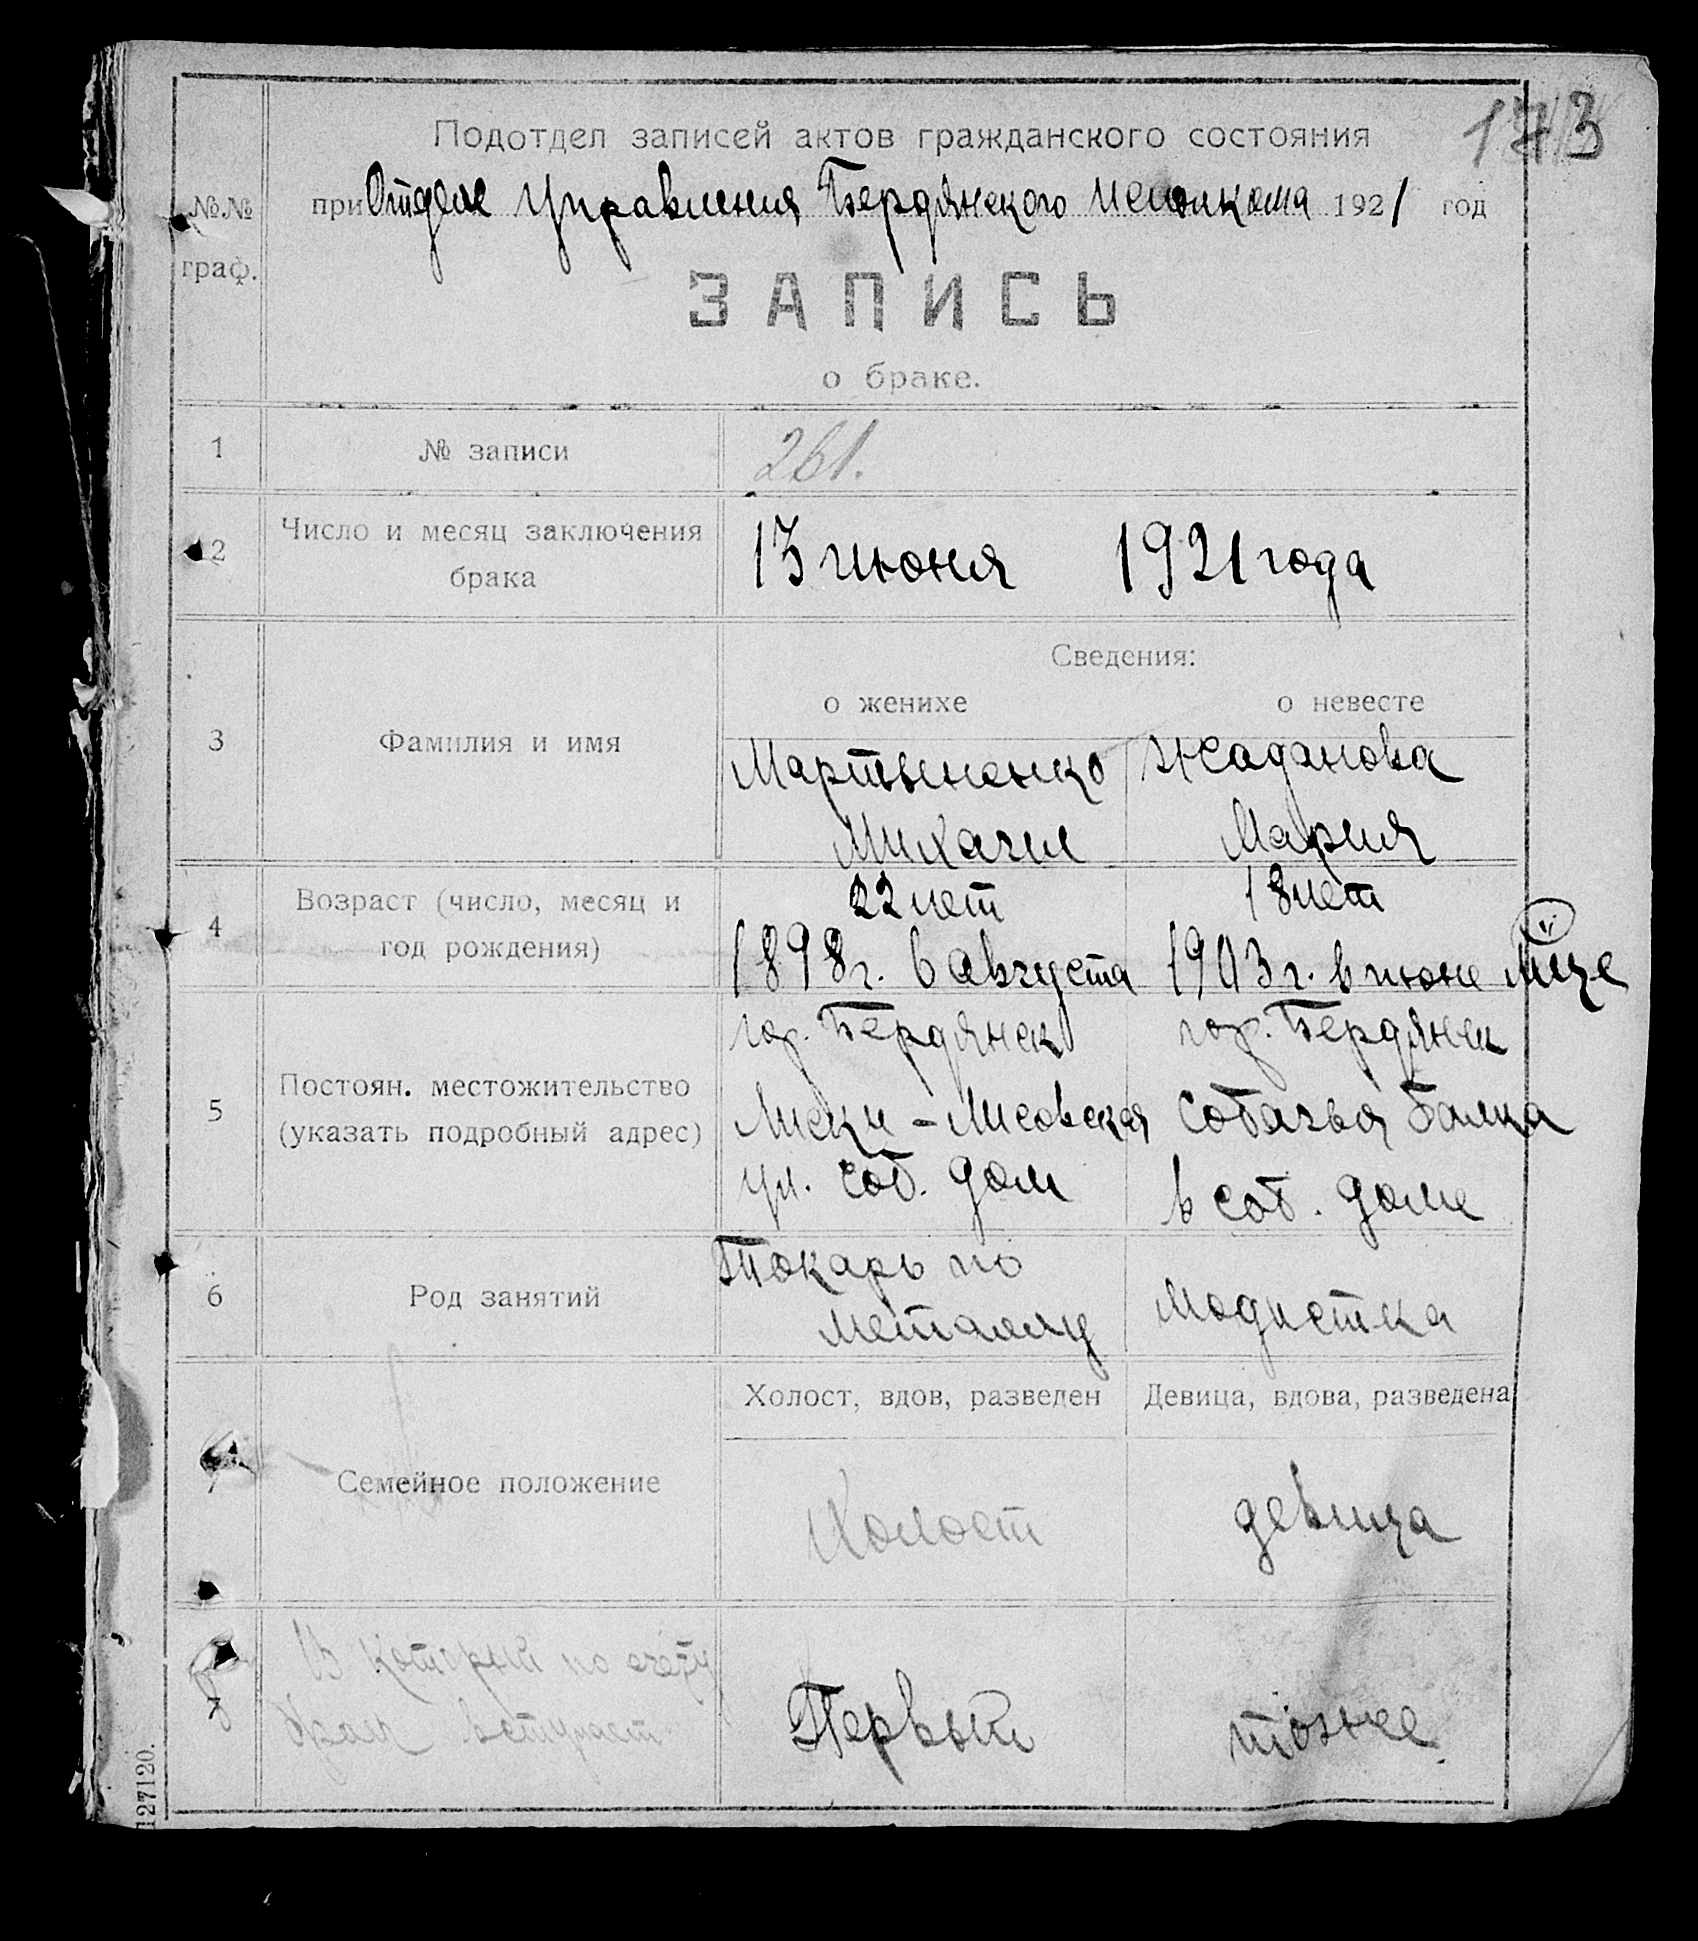 173
Подотдел записей актов гражданского состояния
при Отделе Управления Бердянского Исполкома 1921 год
№№ граф.
ЗАПИСЬ
о браке.
1 № записи 261.
2 Число и месяц заключения брака 13 июня 1921 года
Сведения:
о женихе о невесте
3 Фамилия и имя
Мартыненко Жаданова
Михаил Мария
4 Возраст (число, месяц и год рождения)
22 лет 18 лет
1898 г. 6 Августа 1903 г. в июне м-це
5 Постоян. местожительство (указать подробный адрес)
гор. Бердянск гор. Бердянск
Лиски - Лисовская Собачья балка
ул. соб. дом в соб. доме
6 Род занятий
Токарь по металлу Модистка
Холост, вдов, разведен Девица, вдова, разведена
7 Семейное положение
Холост девица
8 В который по счету брак вступает
Первый тоже
127120.